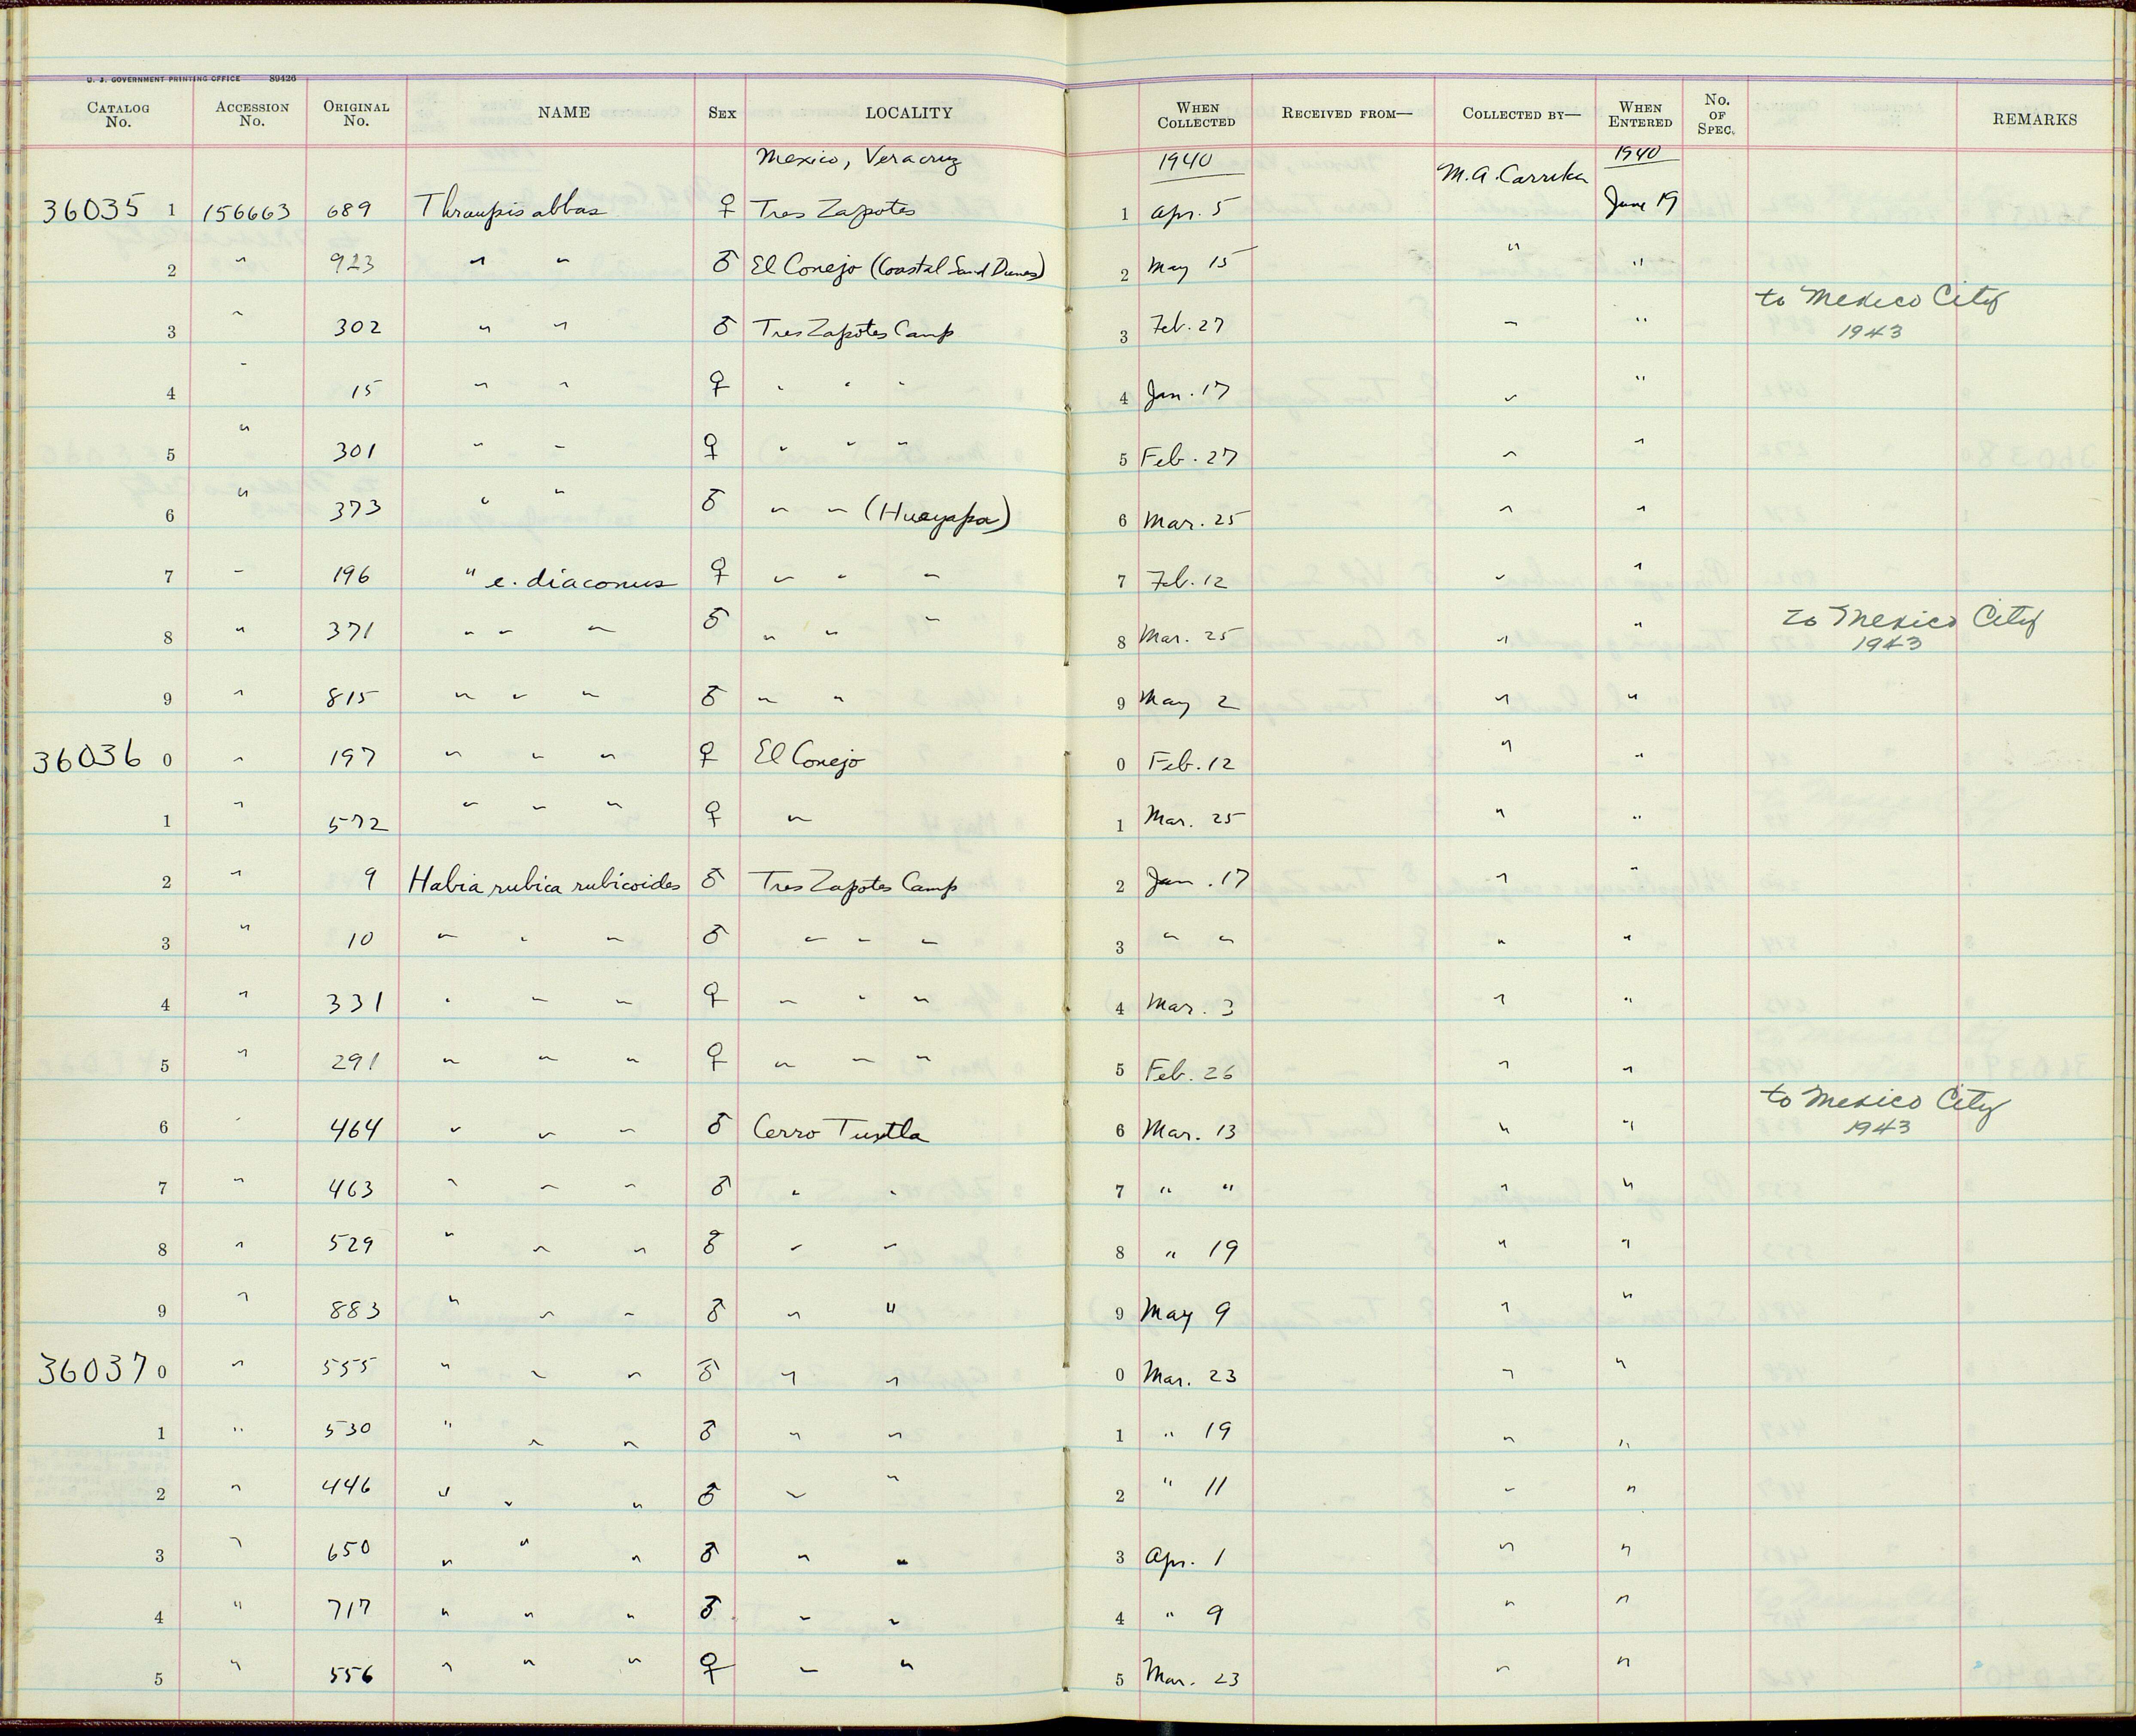 U. S. GOVERNMENT PRINTING OFFICE 89426
CATALOG No. ACCESSION No. ORIGINAL No. NAME SEX LOCALITY WHEN COLLECTED RECEIVED FROM— COLLECTED BY— WHEN ENTERED No. OF SPEC. REMARKS
Mexico, Veracruz 1940 M.A. Carriker 1940
36035 1 156663 689 Thraupis abbas ♀ Tres Zapotes 1 Apr. 5 June 19
2 " 923 " " ♂ El Conejo (Coastal Sand Dunes) 2 May 15 " "
3 " 302 " " ♂ Tres Zapotes Camp 3 Feb. 27 " " to Mexico City 1943
4 " 15 " " ♀ " " " 4 Jan. 17 " "
5 " 301 " " ♀ " " " 5 Feb. 27 " "
6 " 373 " " ♂ " " (Hueyapa) 6 Mar. 25 " "
7 " 196 " e. diaconus ♀ " " " 7 Feb. 12 " "
8 " 371 " " " ♂ " " " 8 Mar. 25 " " to Mexico City 1943
9 " 815 " " " ♂ " " 9 May 2 " "
36036 0 " 197 " " " ♀ El Conejo 0 Feb. 12 " "
1 " 572 " " " ♀ " 1 Mar. 25 " "
2 " 9 Habia rubica rubicoides ♂ Tres Zapotes Camp 2 Jan. 17 " "
3 " 10 " " " ♂ " " " 3 " " " "
4 " 331 " " " ♀ " " " 4 Mar. 3 " "
5 " 291 " " " ♀ " " " 5 Feb. 26 " "
6 " 464 " " " ♂ Cerro Tuxtla 6 Mar. 13 " " to Mexico City 1943
7 " 463 " " " ♂ " " 7 " " " "
8 " 529 " " " ♂ " " 8 " 19 " "
9 " 883 " " " ♂ " " 9 May 9 " "
36037 0 " 555 " " " ♂ " " 0 Mar. 23 " "
1 " 530 " " " ♂ " " 1 " 19 " "
2 " 446 " " " ♂ " " 2 " 11 " "
3 " 650 " " " ♂ " " 3 Apr. 1 " "
4 " 717 " " " ♂ " " 4 " 9 " "
5 " 556 " " " ♀ " " 5 Mar. 23 " "